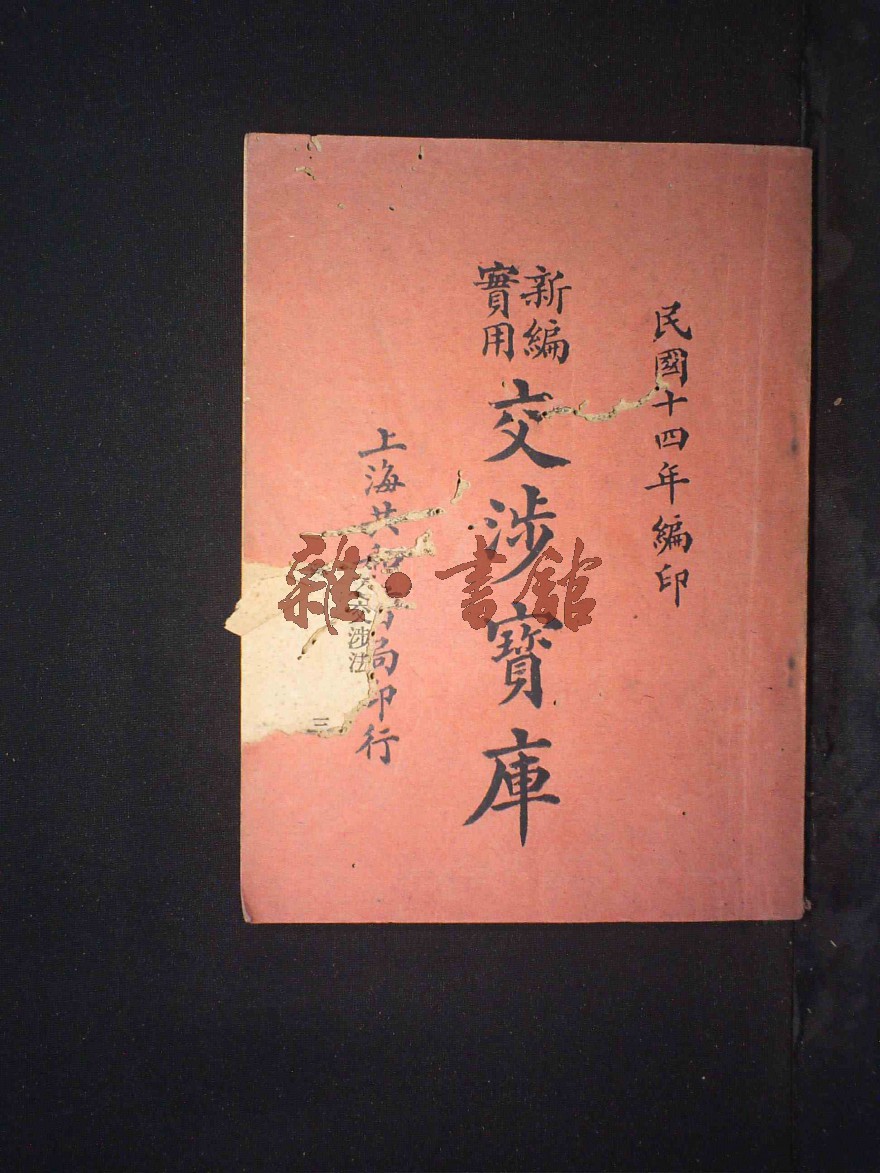 民國十四年編印
新編
實用
交涉寶庫
上海共和書局印行
交涉法
三
雜·書館